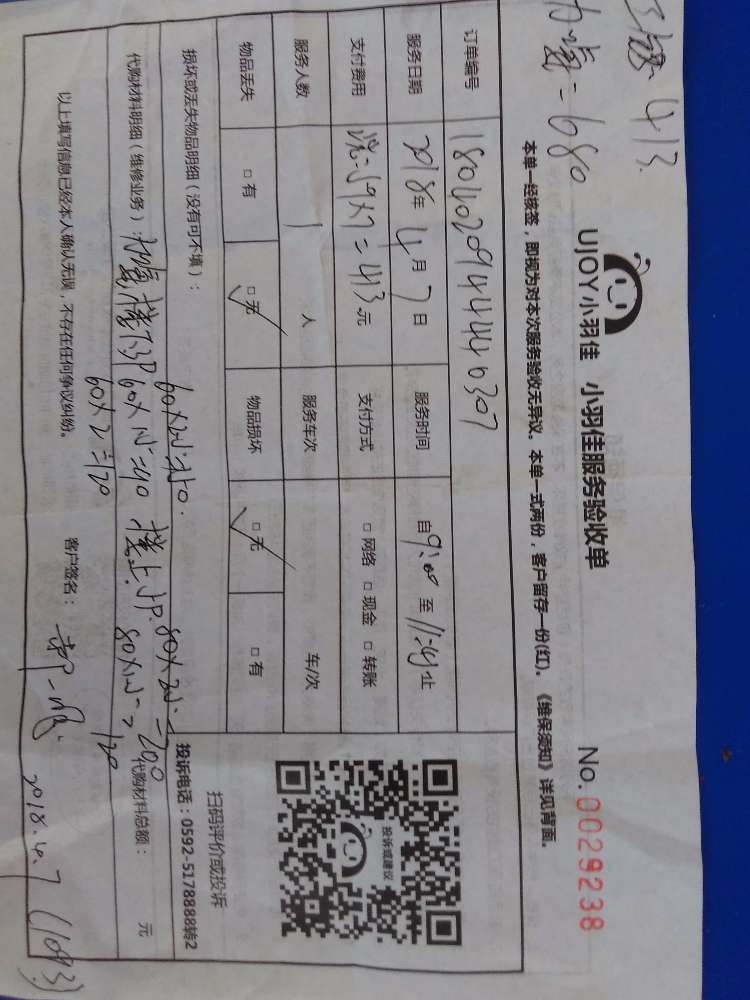 413.
=680
UJOY小羽佳 小羽佳服务验收单 No.0029238
本单一经核签，即视为对本次服务验收无异议。本单一式两份，客户留存一份(红)。《维保须知》详见背面。
订单编号
服务日期 2018年4月7日 服务时间 自9:00至 止
支付费用 59×7=413元 支付方式 □网络 □现金 □转账
服务人数 1人 服务车次 车/次
物品丢失 □有 □无 物品损坏 □无 □有
投诉或建议
扫码评价或投诉
投诉电话：0592-5178888转2
损坏或丢失物品明细（没有可不填）：
代购材料明细（维修业务）： 代购材料总额： 元
60×2=120
以上填写信息已经本人确认无误，不存在任何争议纠纷。 客户签名： 2018.4.7 (1093)